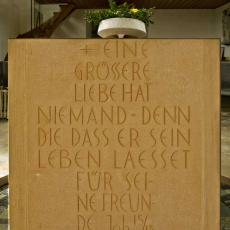 + EINE
GRÖSSERE
LIEBE HAT
NIEMAND - DENN
DIE DASS ER SEIN
LEBEN LAESSET
FÜR SEI-
NE FREUN-
DE Joh 15